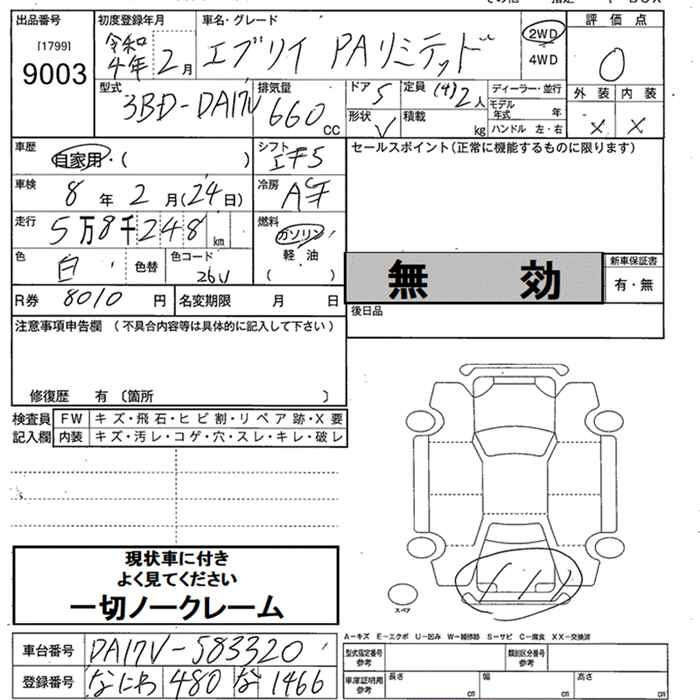 出品番号 初度登録年月 車名・グレード 評価点
[1799] 9003 令和4年 2月 エブリイ PAリミテッド 2WD 4WD 0
型式 3BD-DA17V 排気量 660 CC ドア 5 定員 (4)2人 ディーラー・並行 外装 内装
形状 V 積載 kg モデル年式 年 ハンドル 左・右 × ×
車歴 自家用・( ) シフト セールスポイント(正常に機能するものに限ります)
車検 8年 2月(24日) 冷房
走行 5万8千248km 燃料 ガソリン 軽油 ( )
色 白 色替 色コード 26V 無効 新車保証書 有・無
R券 8010円 名変期限 月 日 後日品
注意事項申告欄 (不具合内容等は具体的に記入して下さい)
修復歴 有 〔箇所 〕
検査員記入欄 FW キズ・飛石・ヒビ割・リペア跡・X要
内装 キズ・汚レ・コゲ・穴・スレ・キレ・破レ
現状車に付き
よく見てください
一切ノークレーム
スペア
A-キズ E-エクボ U-凹み W-補修跡 S-サビ C-腐食 XX-交換済
車台番号 DA17V-583320 型式指定番号 参考 類別区分番号 参考
登録番号 なにわ 480 な 1466 車庫証明用 参考 長さ cm 幅 cm 高さ cm